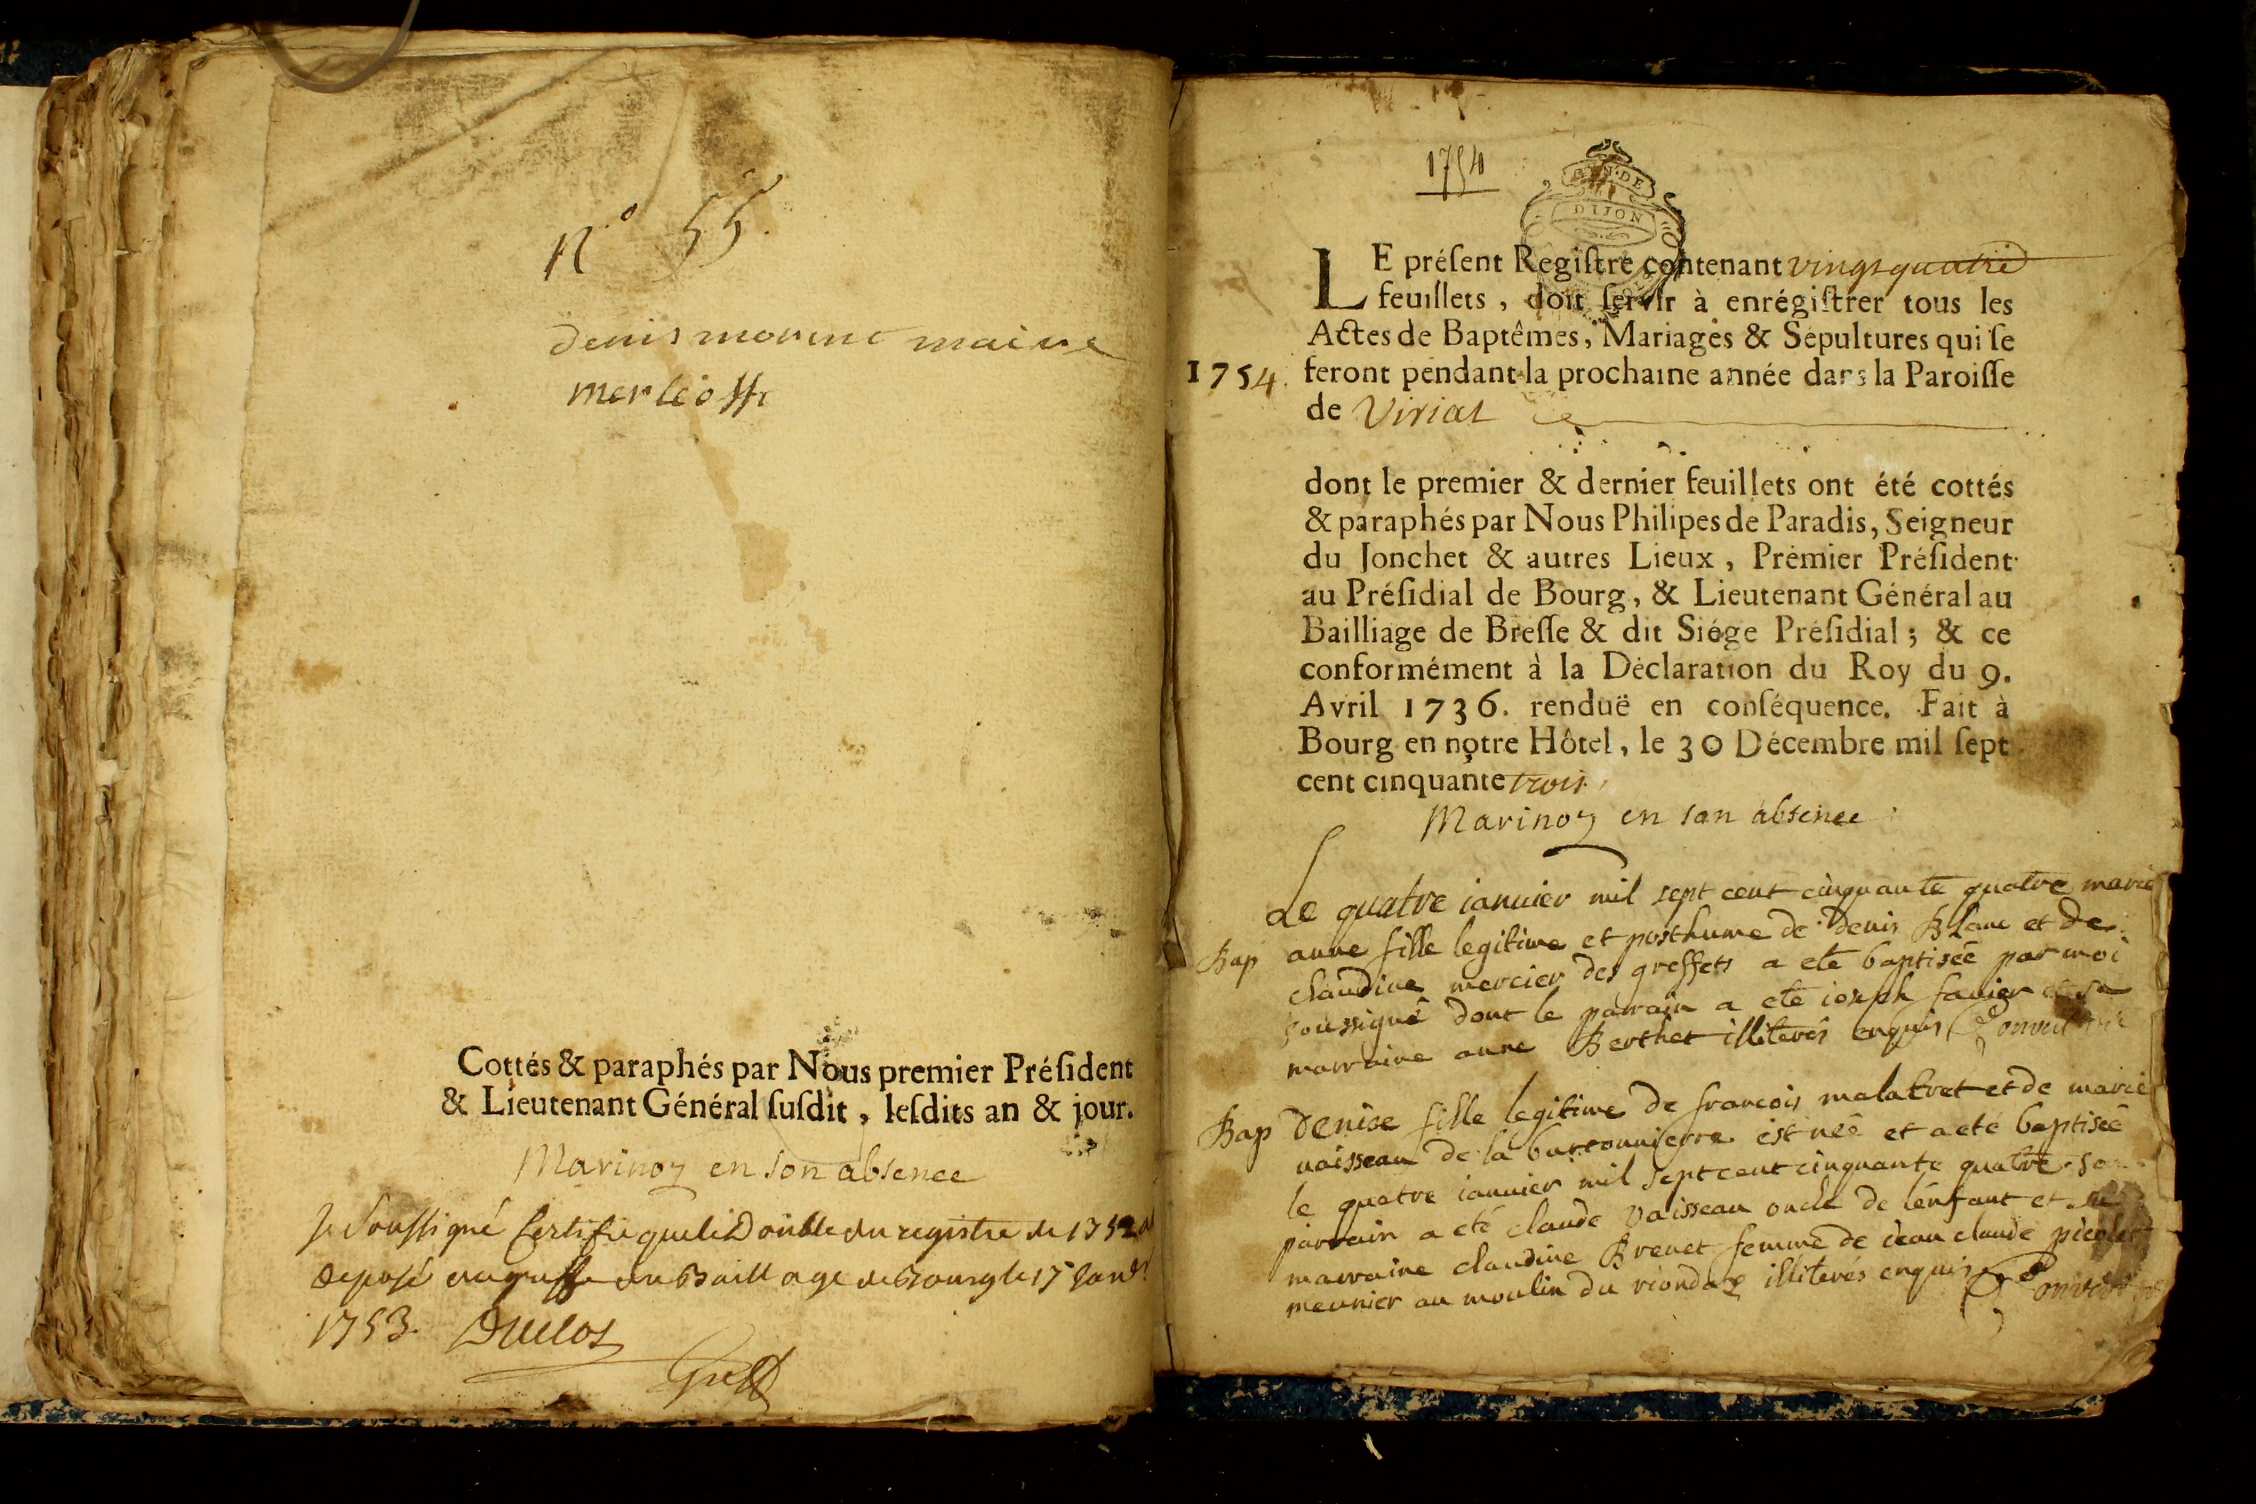 N° 55.
denis morine maire
Cottés & paraphés par Nous premier Préſident
& Lieutenant Général ſuſdit, leſdits an & jour.
Marinoz en son absence
Je Soussigné Certifie que le Double du registre de 1752
deposé au greffe du Baillage de Bourg le 15 Janr
1753. Duclos
Greff
1754
GEN. DE
DIJON
LE préſent Regiſtre contenant vingt quatre
feuillets, doit ſervir à enrégiſtrer tous les
Actes de Baptêmes, Mariages & Sépultures qui ſe
1754. feront pendant la prochaine année dans la Paroiſſe
de Viriat
dont le premier & dernier feuillets ont été cottés
& paraphés par Nous Philipes de Paradis, Seigneur
du Jonchet & autres Lieux, Prémier Préſident
au Préſidial de Bourg, & Lieutenant Général au
Bailliage de Breſſe & dit Siége Préſidial; & ce
conformément à la Déclaration du Roy du 9.
Avril 1736. renduë en conſéquence. Fait à
Bourg en notre Hôtel, le 30 Décembre mil ſept
cent cinquante trois
Marinoz en son absence
Le quatre ianuier mil sept cent cinquante quatre marie
Bap anne fille legitime et posthume de denis Blanc et de
claudine mercier des greffets a eté baptisée par moi
soussigné dont le parrain a eté ioseph favier et sa
marraine anne Berthet illiterés enquis
Bap denise fille legitime de francois malatret et de marie
vaisseau de la bussonnierre est née et a eté baptisée
le quatre ianuier mil sept cent cinquante quatre son
parrain a eté claude vaisseau oncle de l'enfant et sa
marraine claudine Brevet femme de iean claude picolet
meunier au moulin du riondaz illiterés enquis